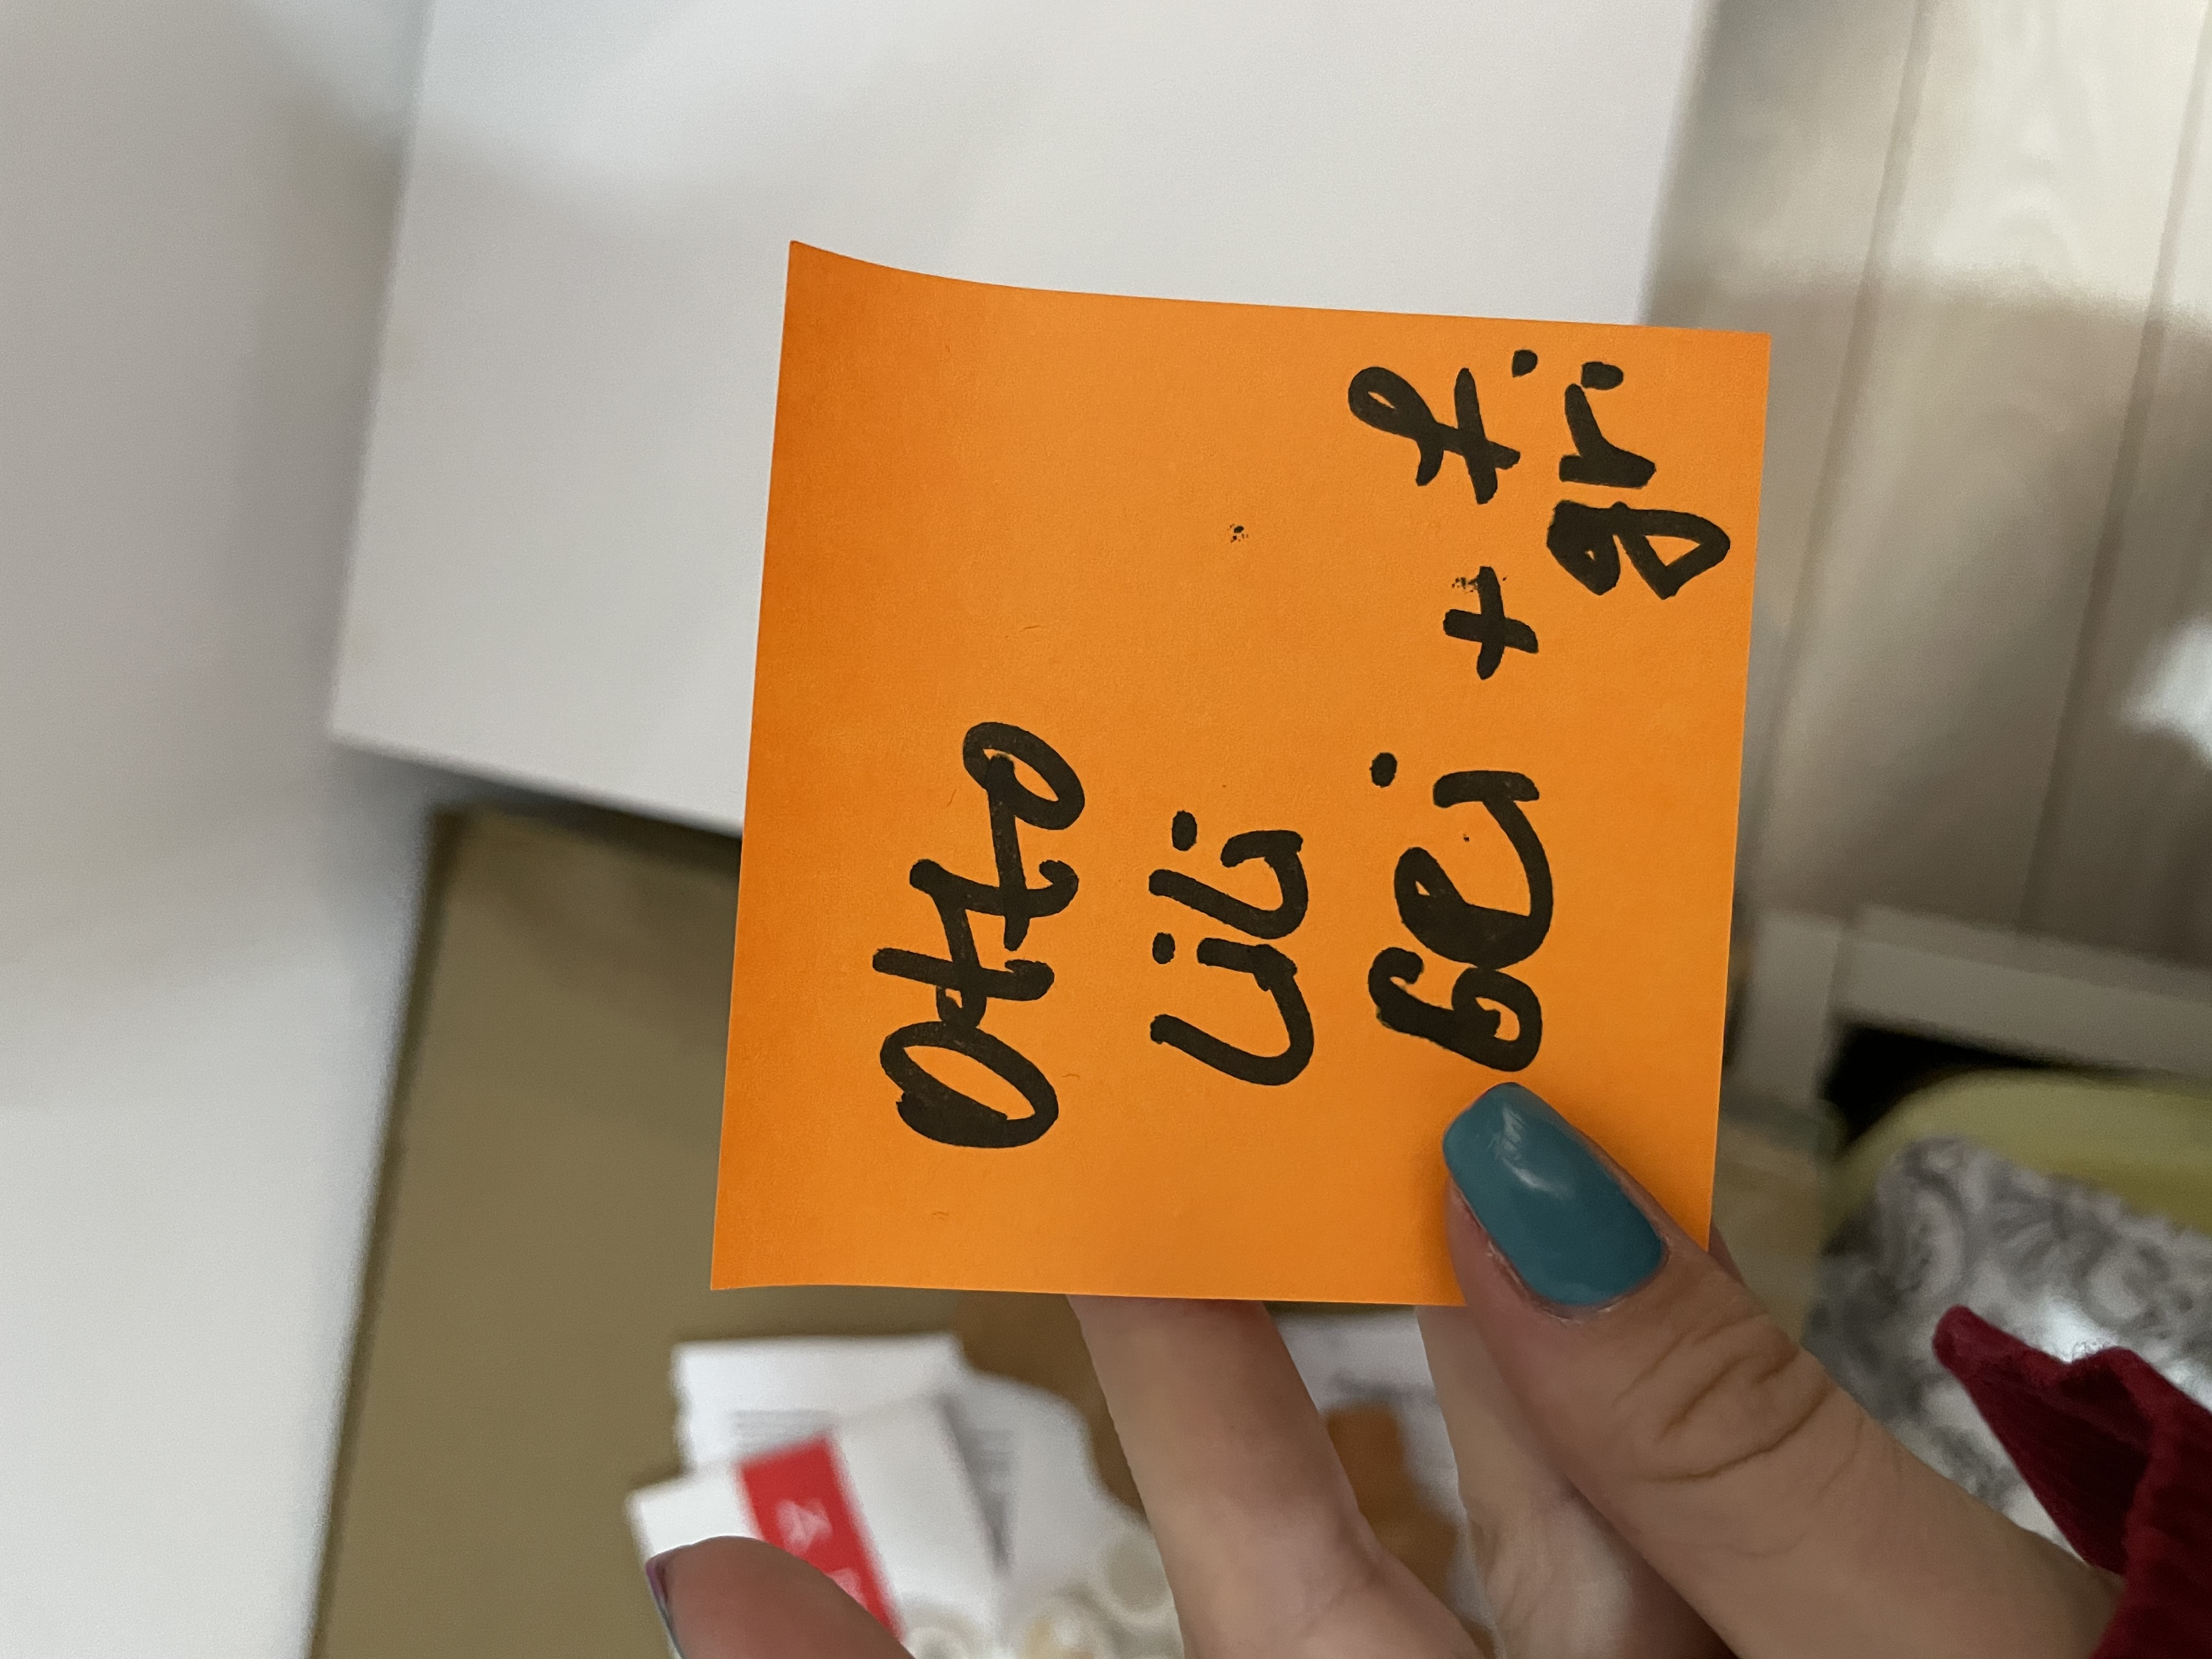 Otto
Lili
Gei + f.
gr.